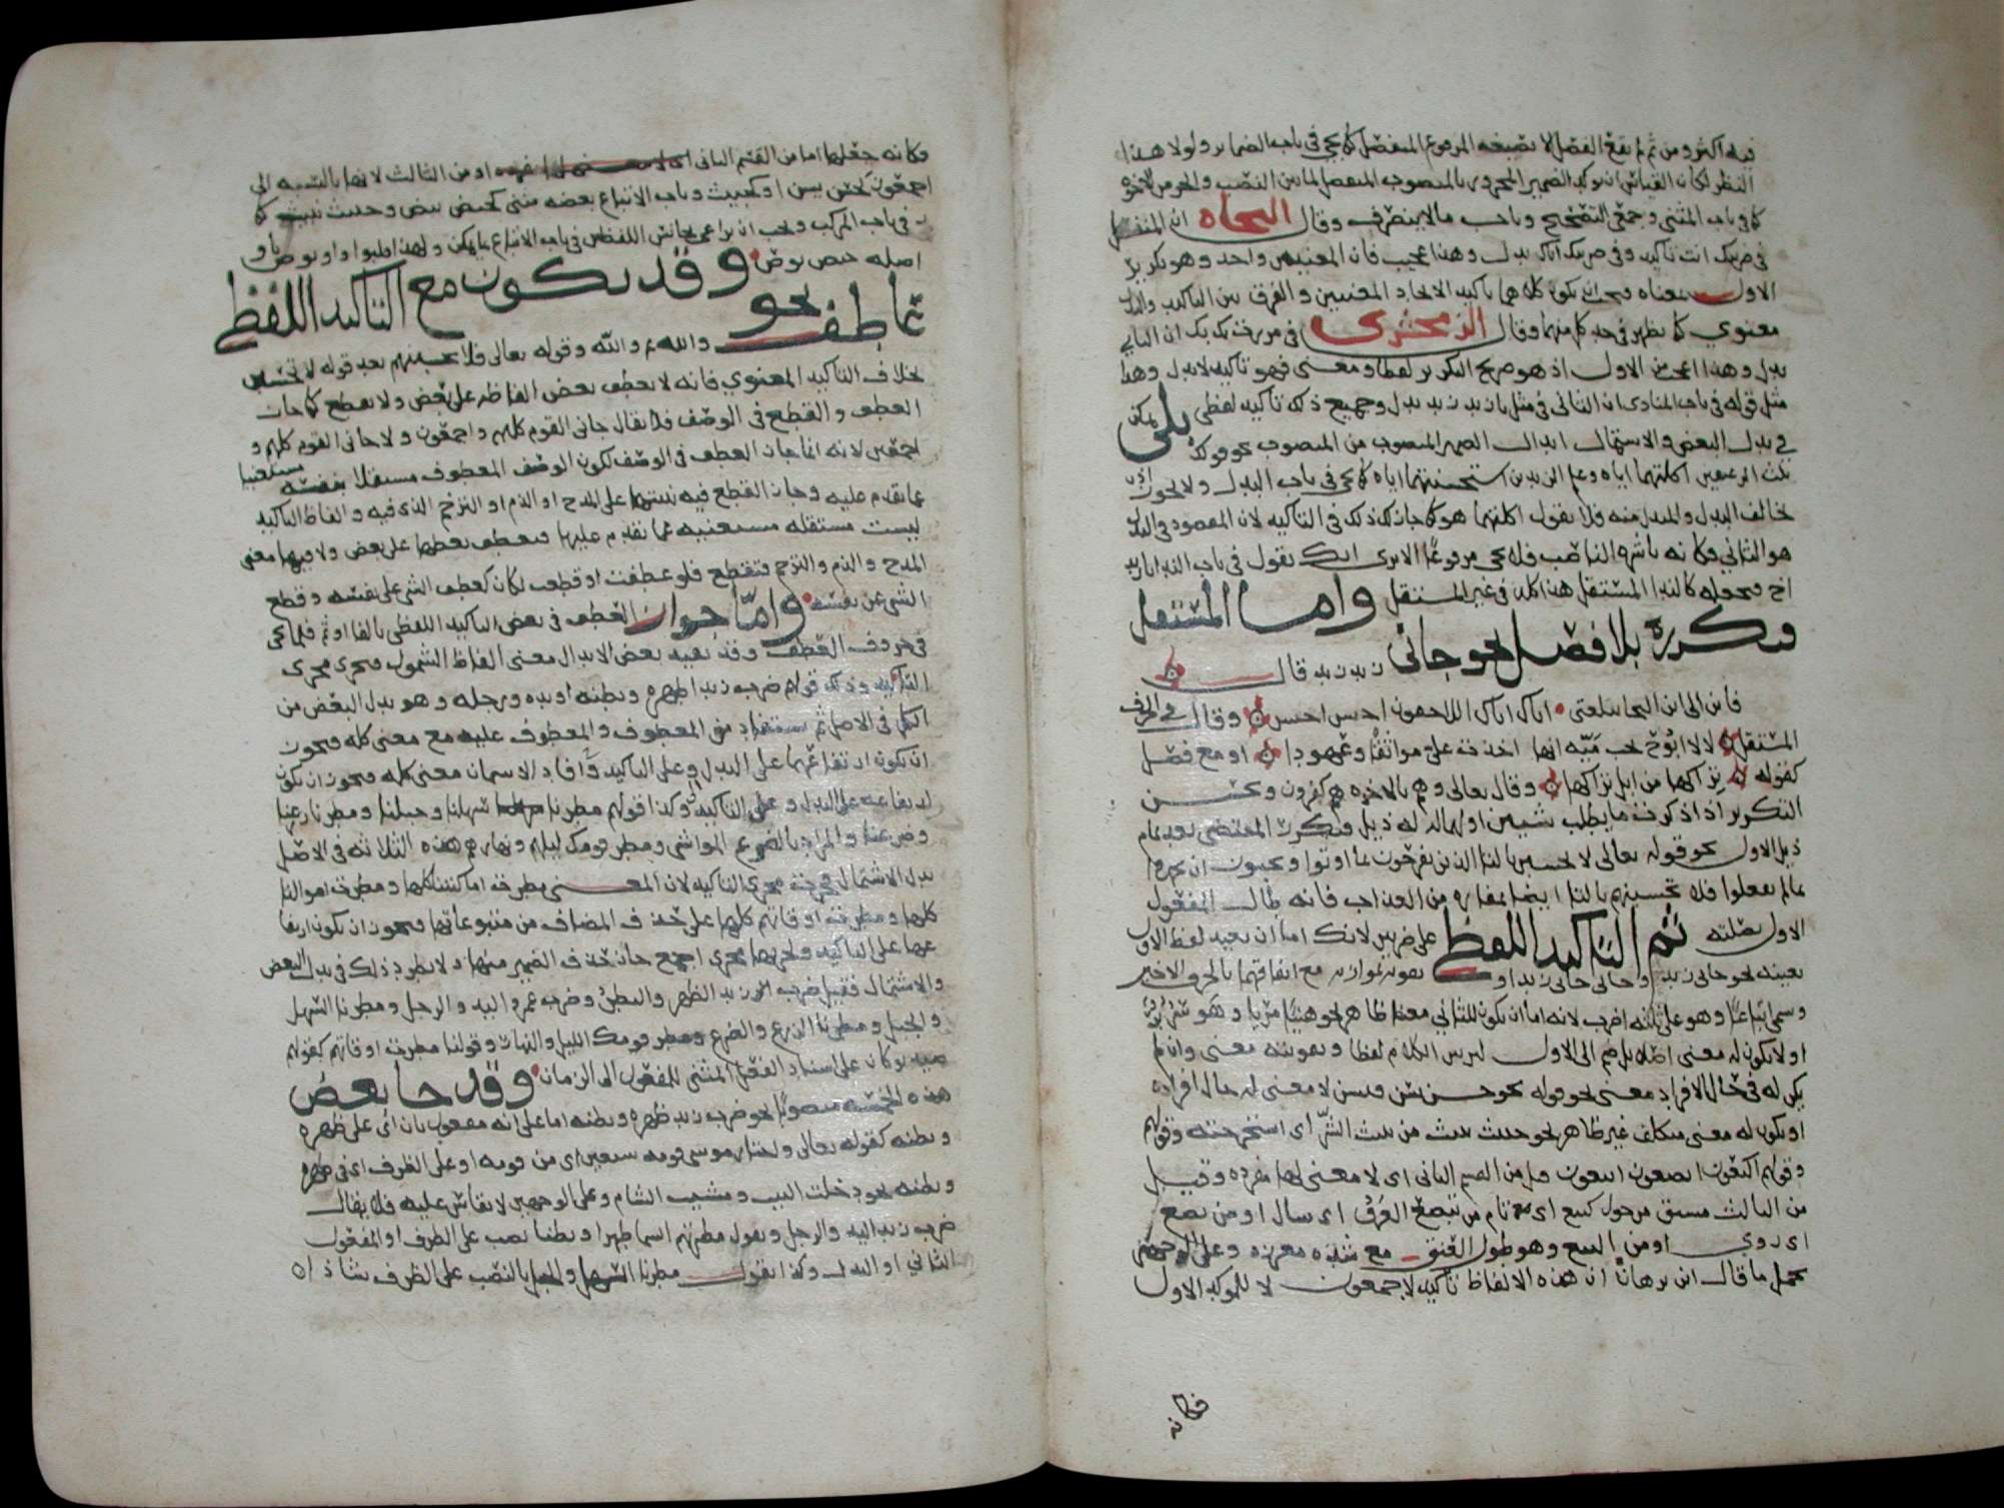 فيه اكثر ومن ثم لم يقع الفصل الا بصيغه المرفوع المنفصل كما يجي في باب الضماير ولولا هذا
النظر لكان القياس ان يوكد الضمير المجرور بالمنصوب المنفصل لما بين النصب والجر من الاخوه
كما في باب المثنى وجمعي التصحيح وباب ما لا ينصرف وقال النحاه ان المنفصل
في ضربتك انت تاكيد وفي ضربتك اياك بدل وهذا عجيب فان المعنيين واحد وهو تكرير
الاول بمعناه فيجب ان يكون كلاهما تاكيد الاتحاد المعنيين والفرق بين التاكيد والبدل
معنوي كما يظهر في حد كل منهما وقال الزمخشرى في مررت بك بك ان الثاني
بدل وهذا اعجب من الاول اذ هو صريح التكرير لفظا ومعنى فهو تاكيد لا بدل وهذا
مثل قوله في باب المنادى ان الثاني في مثل يا زيد زيد بدل وجميع ذلك تاكيد لفظي بلى يمكن
في بدل البعض والاشتمال ابدال الضمير المنصوب من المنصوب نحو قولك
ثلث الرغيفين اكلتهما اياه وعلم الزيدين استحسنتهما اياه كما يجي في باب البدل ولا يجوز ان
تخالف البدل والمبدل منه فلا تقول اكلتهما هو كما جاز ذلك في التاكيد لان المقصود في البدل
هو الثاني فكانه باشره الناصب فلا يجي مرفوعا الا ترى انك تقول في باب الندا يا زيد
اخ فتجعله كالندا المستقل هذا كله في غير المستقل واما المستقل
فتكرره بلا فصل نحو جاني زيد زيد قال
فاين الى اين النجا ببغلتي اتاك اتاك اللاحقون احبس احبس وقال في الحرف
المستقل لا لا ابوح بحب مَيّه انها اخذت علي مواثقا وعهودا او مع فصل
كقوله تراكها من ابل تراكها وقال تعالى وهم بالاخره هم كفرون ويحسن
التكرير اذا ذكرت ما يطلب شيين اولهما له ذيل فتكرر المقتضي بعد تمام
ذيل الاول نحو قوله تعالى لا تحسبن بالتا الذين يفرحون بما اوتوا ويحبون ان يحمدوا
بما لم يفعلوا فلا تحسبنهم بالتا ايضا بمفازه من العذاب فانه طال المفعول
الاول بصلته ثم التاكيد اللفظي على ضربين لانك اما ان تعيد لفظ الاول
بعينه نحو جاني زيد زيد وجاني جاني زيد او تقويه بموازنه مع اتفاقهما بالحرف الاخير
وسمى اتباعا وهو على ثلثه اضرب لانه اما ان يكون للثاني معنى ظاهر نحو هنيا مريا وهو سَرّ بَرّ
او لا يكون له معنى اصلا بل ضم الى الاول لتزيين الكلام لفظا وتقويته معنى وان لم
يكن له في حال الافراد معنى نحو قوله نحو حسن بسن قسن لا معنى له حال افراده
او يكون له معنى متكلف غير ظاهر نحو خبيث نبيث من نبث الشر اي استخرجته وقولهم
وقولهم اكتعون ابصعون ابتعون قيل من القسم الثاني اي لا معنى لها مفرده وقيل
من الثالث مشتق من حول كتيع اي تام من تبصع العرق اي سال او من بصع
اي روي او من البتع وهو طول العنق مع شده مغرزه وعلى الوجهين
يحمل ما قال ابن برهان ان هذه الالفاظ تاكيد لاجمعون لا للموكد الاول
فكانه
وكانه جعلها اما من القسم الثاني او من الثالث لانها بالنسبه الى
اجمعون كحسن بسن او كخبيث وباب الاتباع بعضه مبني كحيص بيص وخبيث نبيث كما
في باب المركب ويجب ان يراعى تجانس اللفظين في باب الاتباع ما يمكن ولهذا قلبوا واو بوص يا و
اصله حيص بوص وقد يكون مع التاكيد اللفظي
عاطف نحو والله ثم والله وقوله تعالى فلا تحسبنهم بعد قوله لا تحسبن
بخلاف التاكيد المعنوي فانه لا يعطف بعض الفاظه على بعض ولا يقطع كما جاز
العطف والقطع في الوصف فلا يقال جاني القوم كلهم واجمعون ولا جاني القوم كلهم و
اجمعين لانه انما جاز العطف في الوصف لكون الوصف المعطوف مستقلا بنفسه مستغنيا
عما تقدم عليه وجاز القطع فيه تنبيها على المدح او الذم او الترحم الذي فيه والفاظ التاكيد
ليست مستقله مستغنيه عما تقدم عليها فيعطف بعضها على بعض ولا فيها معنى
المدح والذم والترحم فتقطع فلو عطفت او قطعت لكان كعطف الشي على نفسه وقطع
الشي عن نفسه واما جواز العطف في بعض التاكيد اللفظي بالفا او ثم فلما يجي
في حروف العطف وقد يفيد بعض الابدال معنى الفاظ الشمول فيجري مجرى
التاكيد وذلك قولهم ضرب زيد ظهره وبطنه او يده ورجله وهو بدل البعض من
الكل في الاصل ثم يستفاد من المعطوف والمعطوف عليه مع معنى كله فيجوز
ان يكون ارتفاعهما على البدل وعلى التاكيد وافاد الاسمان معنى كله فيجوز ان يكون
ارتفاعه على البدل وعلى التاكيد وكذا قولهم مطرنا سهلنا وجبلنا ومطرنا زرعنا
وضرعنا والمراد بالضرع المواشي ومطر قومك ليلهم ونهارهم هذه الثلاثه في الاصل
بدل الاشتمال فجرت مجرى التاكيد لان المعنى مطرت اماكننا كلها ومطرت اموالنا
كلها ومطرت اوقاتهم كلها على حذف المضاف من متبوعاتها فيجوز ان يكون ارتفا
عها على التاكيد ولجريها مجرى اجمع جاز حذف الضمير منها ولا يطرد ذلك في بدل البعض
والاشتمال فقيل ضرب زيد الظهر والبطن وضرب عمرو اليد والرجل ومطرنا السهل
والجبل ومطرنا الزرع والضرع ومطر قومك الليل والنهار وقولنا مطرت اوقاتهم كقولهم
صيد يوكان على اسناد الفعل المبني للمفعول الى الزمان وقد جا بعض
هذه الخمسه منصوبا نحو ضرب زيد ظهره وبطنه اما على انه مفعول ثان اي على ظهره
وبطنه كقوله تعالى واختار موسى قومه سبعين اي من قومه او على الظرف اي في ظهره
وبطنه نحو دخلت البيت وذهبت الشام وعلى الوجهين لا يقاس عليه فلا يقال
ضرب زيد اليد والرجل وتقول مطرتهم السما ظهرا وبطنا نصب على الظرف او المفعول
الثاني او البدل وكذا تقول مطرنا السهل والجبل بالنصب على الظرف شاذ